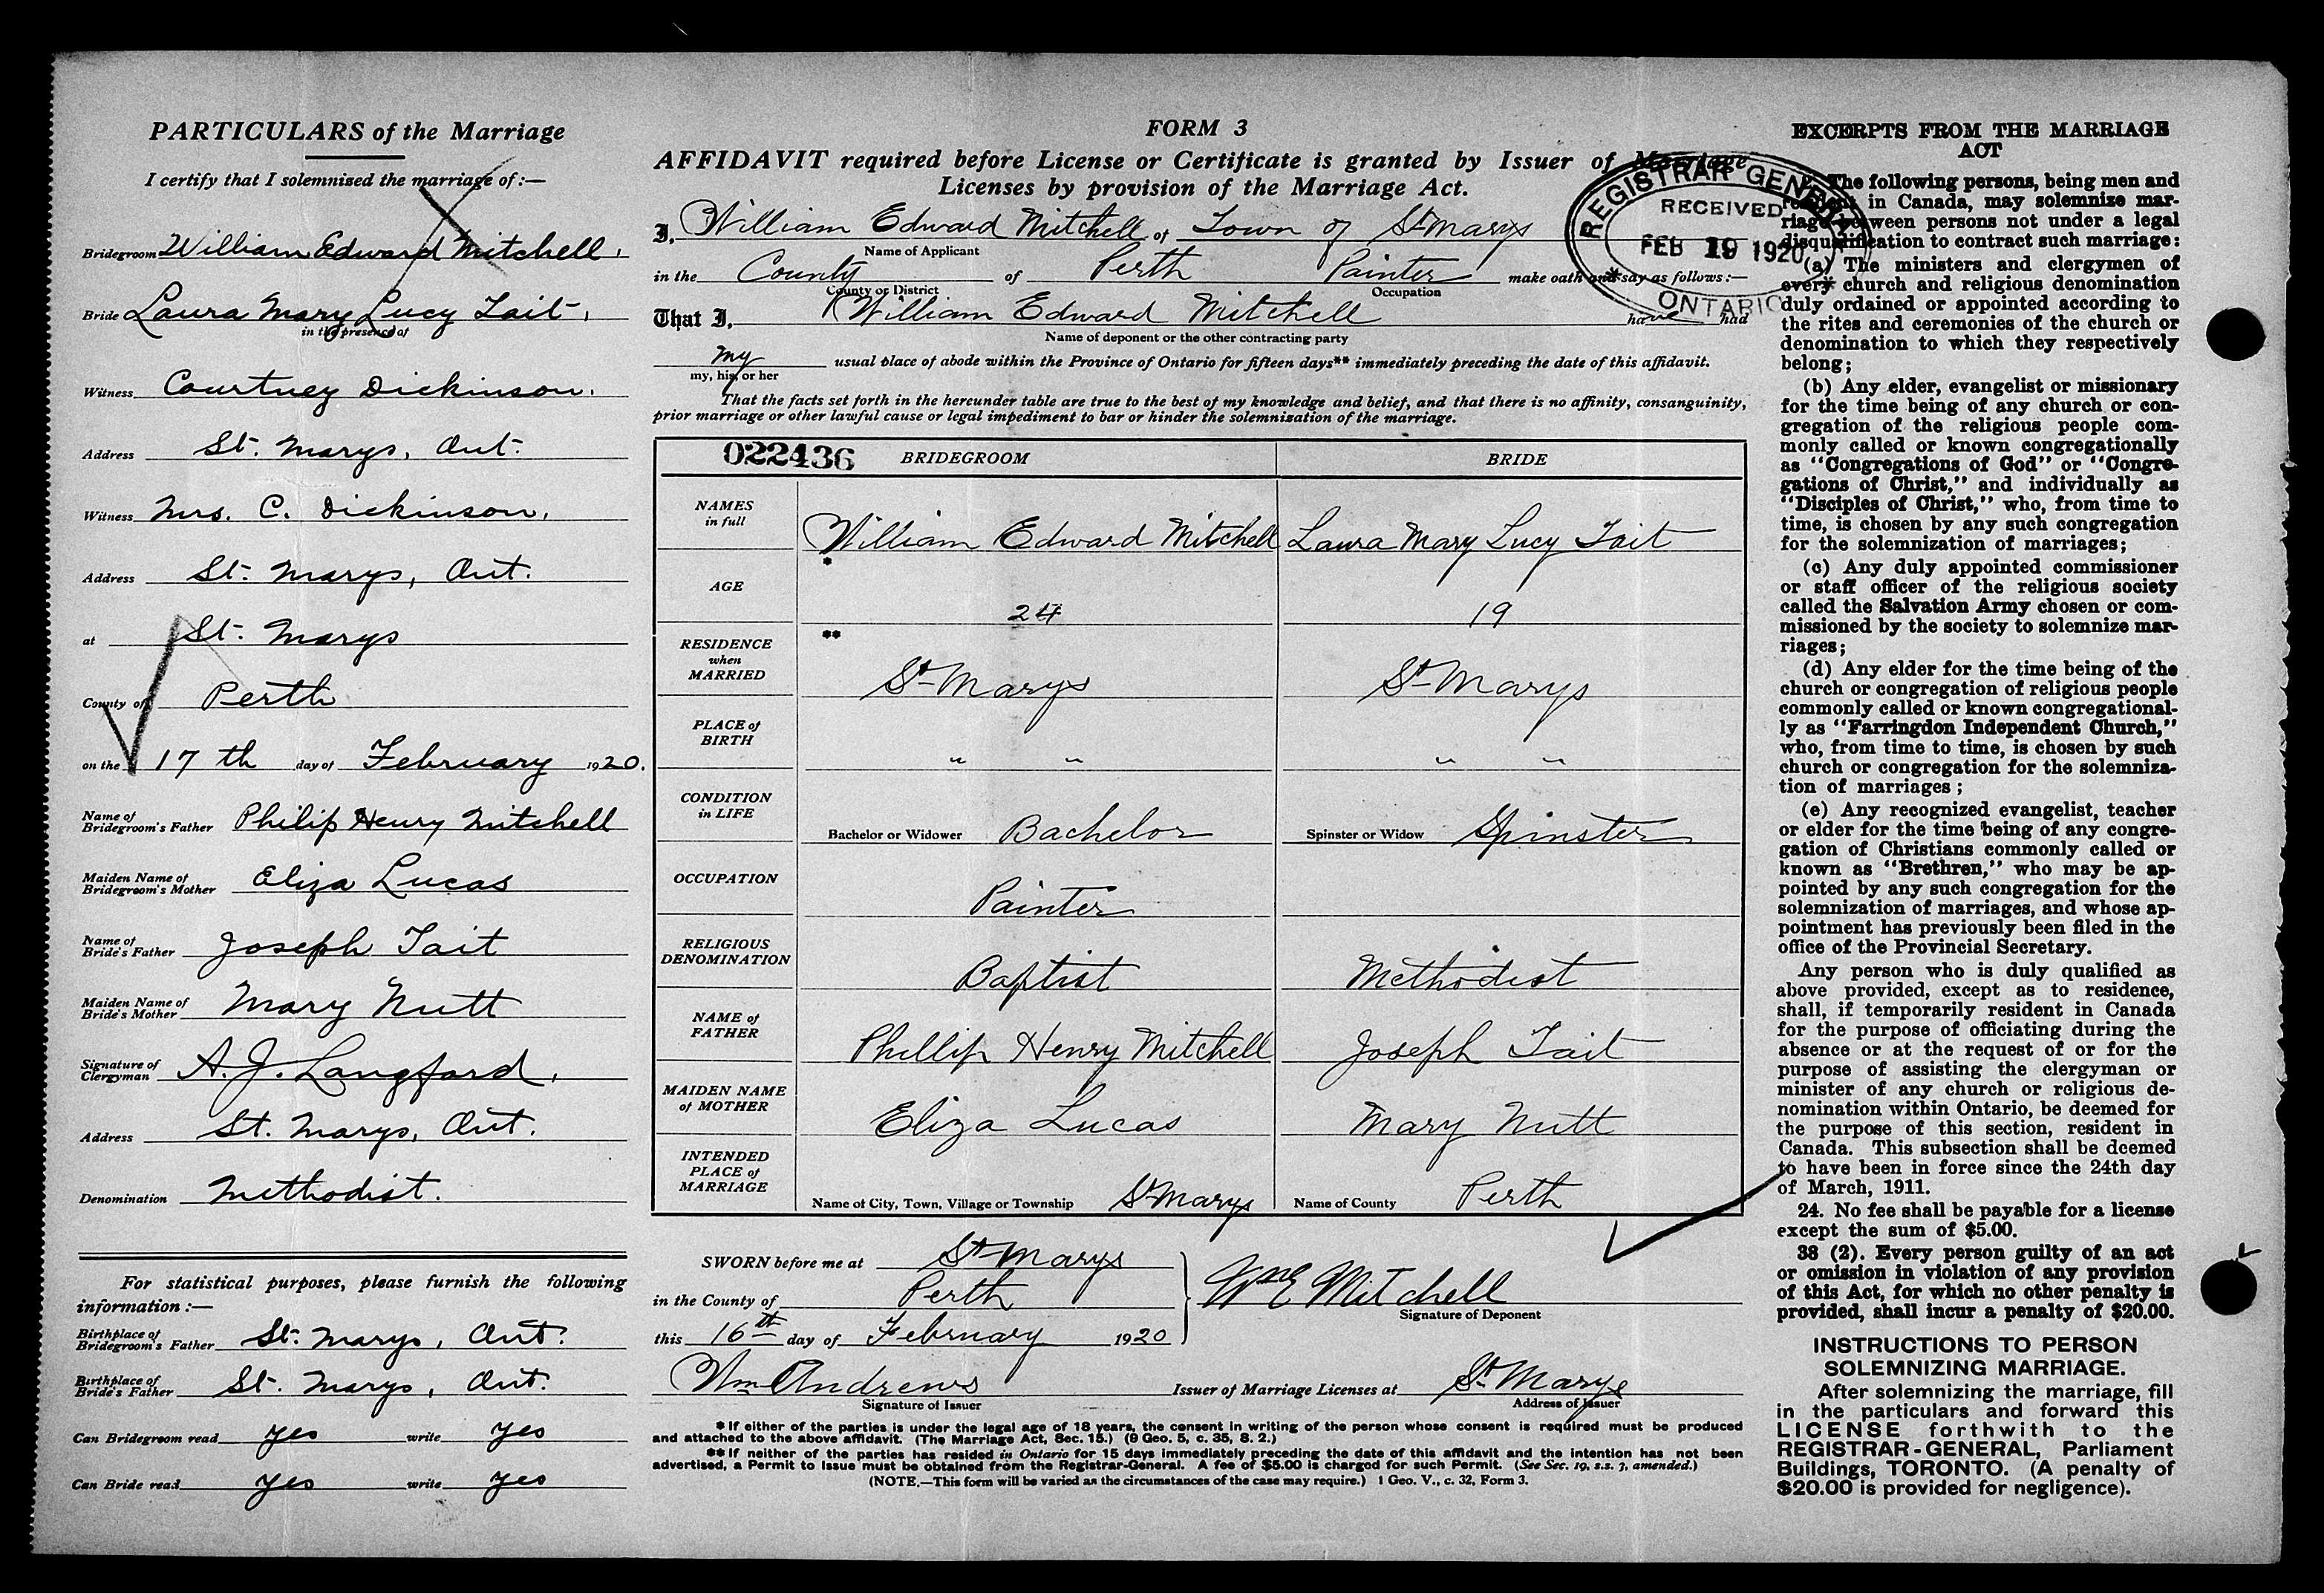 PARTICULARS of the Marriage
I certify that I solemnised the marriage of:—
Bridegroom William Edward Mitchell,
Bride Laura Mary Lucy Tait,
in the presence of
Witness Courtney Dickinson.
Address St. Marys, Ont.
Witness Mrs. C. Dickinson,
Address St. Marys, Ont.
at St. Marys
County of Perth
on the 17th day of February 1920.
Name of Bridegroom's Father Philip Henry Mitchell
Maiden Name of Bridegroom's Mother Eliza Lucas
Name of Bride's Father Joseph Tait
Maiden Name of Bride's Mother Mary Nutt
Signature of Clergyman A. J. Langford,
Address St. Marys, Ont.
Denomination Methodist.
For statistical purposes, please furnish the following
information :—
Birthplace of Bridegroom's Father St. Marys, Ont.
Birthplace of Bride's Father St. Marys, Ont.
Can Bridegroom read yes write yes
Can Bride read yes write yes
FORM 3
AFFIDAVIT required before License or Certificate is granted by Issuer of Marriage
Licenses by provision of the Marriage Act.
I, William Edward Mitchell of Town of St Marys
Name of Applicant
in the County of Perth Painter make oath and say as follows:—
County or District Occupation
That I, William Edward Mitchell have had
Name of deponent or the other contracting party
my usual place of abode within the Province of Ontario for fifteen days** immediately preceding the date of this affidavit.
my, his, or her
That the facts set forth in the hereunder table are true to the best of my knowledge and belief, and that there is no affinity, consanguinity,
prior marriage or other lawful cause or legal impediment to bar or hinder the solemnization of the marriage.
022436 BRIDEGROOM BRIDE
NAMES in full William Edward Mitchell Laura Mary Lucy Tait
*
AGE 24 19
**
RESIDENCE when MARRIED St Marys St Marys
PLACE of BIRTH " " " "
CONDITION in LIFE Bachelor or Widower Bachelor Spinster or Widow Spinster
OCCUPATION Painter
RELIGIOUS DENOMINATION Baptist Methodist
NAME of FATHER Phillip Henry Mitchell Joseph Tait
MAIDEN NAME of MOTHER Eliza Lucas Mary Nutt
INTENDED PLACE of MARRIAGE Name of City, Town, Village or Township St Marys Name of County Perth
SWORN before me at St Marys
in the County of Perth Wm E Mitchell
Signature of Deponent
this 16th day of February 1920
Wm Andrews Issuer of Marriage Licenses at St Marys
Signature of Issuer Address of Issuer
* If either of the parties is under the legal age of 18 years, the consent in writing of the person whose consent is required must be produced
and attached to the above affidavit. (The Marriage Act, Sec. 15.) (9 Geo. 5, c. 35, S. 2.)
** If neither of the parties has resided in Ontario for 15 days immediately preceding the date of this affidavit and the intention has not been
advertised, a Permit to Issue must be obtained from the Registrar-General. A fee of $5.00 is charged for such Permit. (See Sec. 19, s.s. 3, amended.)
(NOTE.—This form will be varied as the circumstances of the case may require.) 1 Geo. V., c. 32, Form 3.
REGISTRAR GENERAL
RECEIVED
FEB 19 1920
ONTARIO
EXCERPTS FROM THE MARRIAGE
ACT
The following persons, being men and
resident in Canada, may solemnize mar-
riage between persons not under a legal
disqualification to contract such marriage:
(a) The ministers and clergymen of
every church and religious denomination
duly ordained or appointed according to
the rites and ceremonies of the church or
denomination to which they respectively
belong;
(b) Any elder, evangelist or missionary
for the time being of any church or con-
gregation of the religious people com-
monly called or known congregationally
as "Congregations of God" or "Congre-
gations of Christ," and individually as
"Disciples of Christ," who, from time to
time, is chosen by any such congregation
for the solemnization of marriages;
(c) Any duly appointed commissioner
or staff officer of the religious society
called the Salvation Army chosen or com-
missioned by the society to solemnize mar-
riages;
(d) Any elder for the time being of the
church or congregation of religious people
commonly called or known congregational-
ly as "Farringdon Independent Church,"
who, from time to time, is chosen by such
church or congregation for the solemniza-
tion of marriages;
(e) Any recognized evangelist, teacher
or elder for the time being of any congre-
gation of Christians commonly called or
known as "Brethren," who may be ap-
pointed by any such congregation for the
solemnization of marriages, and whose ap-
pointment has previously been filed in the
office of the Provincial Secretary.
Any person who is duly qualified as
above provided, except as to residence,
shall, if temporarily resident in Canada
for the purpose of officiating during the
absence or at the request of or for the
purpose of assisting the clergyman or
minister of any church or religious de-
nomination within Ontario, be deemed for
the purpose of this section, resident in
Canada. This subsection shall be deemed
to have been in force since the 24th day
of March, 1911.
24. No fee shall be payable for a license
except the sum of $5.00.
38 (2). Every person guilty of an act
or omission in violation of any provision
of this Act, for which no other penalty is
provided, shall incur a penalty of $20.00.
INSTRUCTIONS TO PERSON
SOLEMNIZING MARRIAGE.
After solemnizing the marriage, fill
in the particulars and forward this
LICENSE forthwith to the
REGISTRAR-GENERAL, Parliament
Buildings, TORONTO. (A penalty of
$20.00 is provided for negligence).